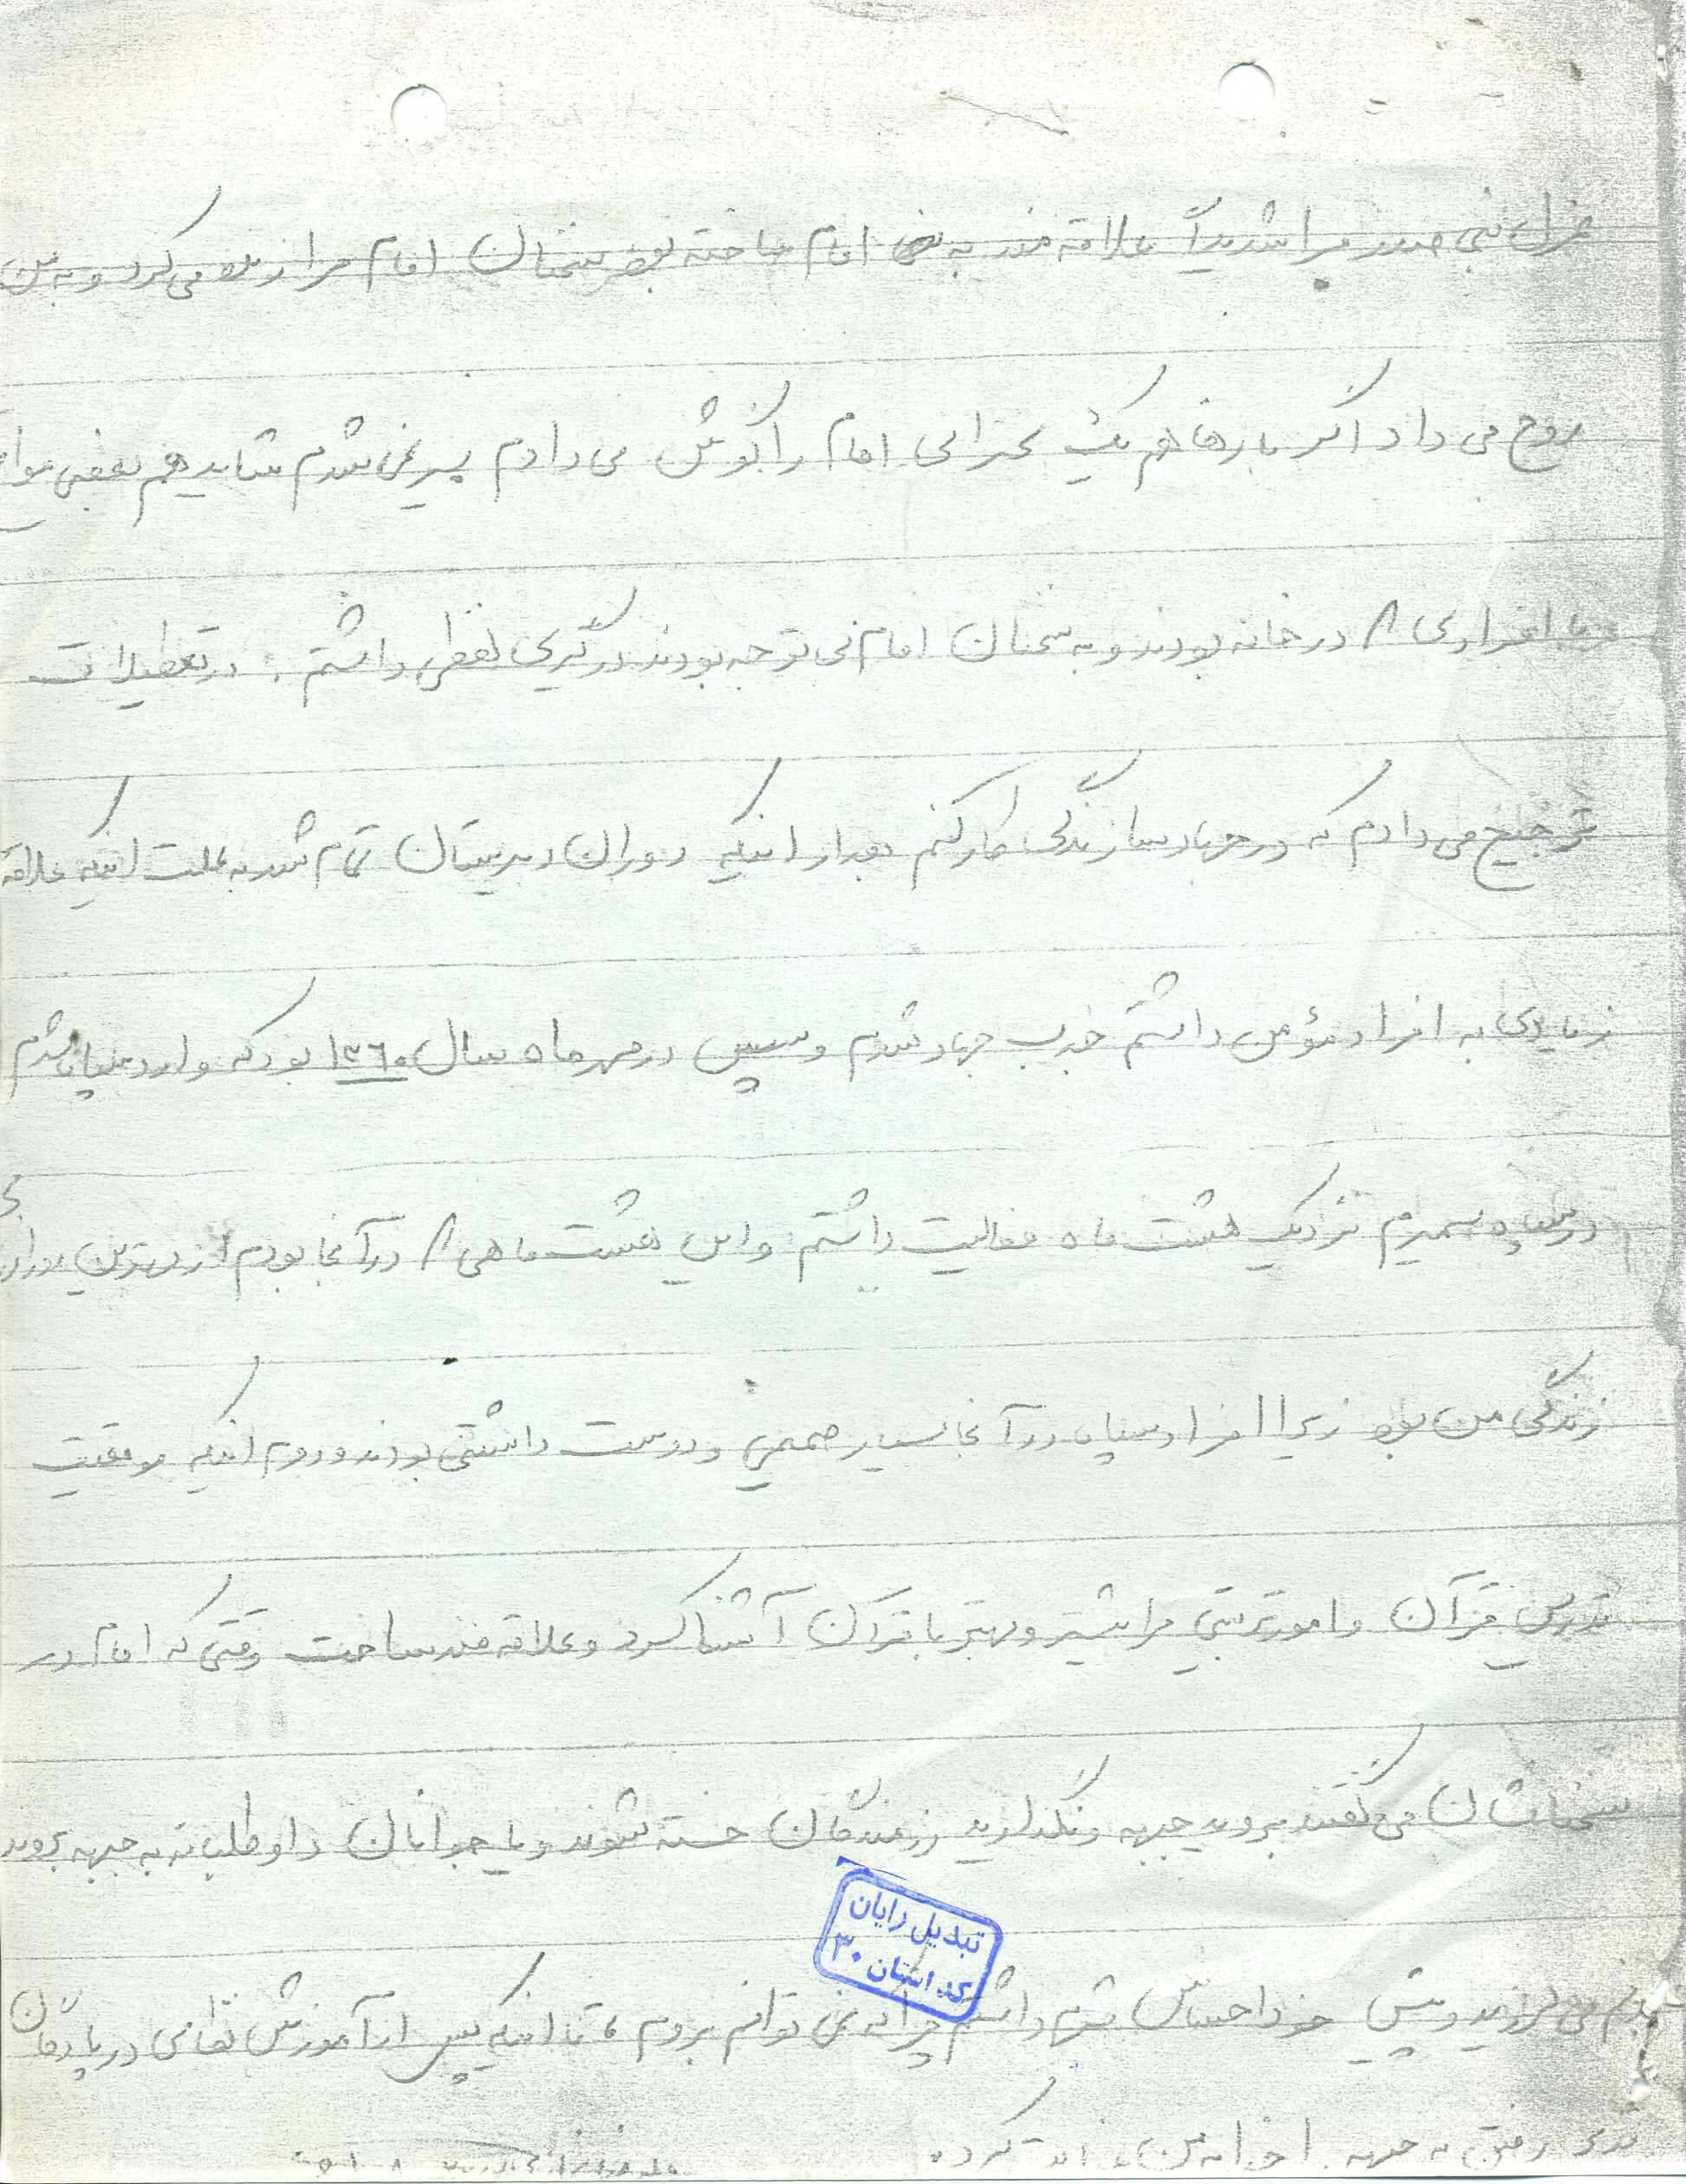 مرا شدیداً علاقه مند به امام ساخته بود سخنان امام مرا زنده می کرد و به من
روح می داد اگر بارها هم یک سخنرانی امام را گوش می دادم سیر نمی شدم شاید هم بعضی
و با افرادی ۸ در خانه بودند و به سخنان امام بی توجه بودند درگیری لفظی داشتم . در تعطیلات
ترجیح می دادم که در جهاد سازندگی کار کنم بعد از اینکه دوران دبیرستان تمام شد به علت اینکه علاقه
زیادی به افراد مؤمن داشتم جذب جهاد شدم و سپس در مهرماه سال ۱۳۶۰ بود که وارد سپاه شدم
در سپاه سمیرم نزدیک هشت ماه فعالیت داشتم و این هشت ماهی ۸ در آنجا بودم از بهترین دوران
زندگی من بود زیرا افراد سپاه در آنجا بسیار صمیمی و دوست داشتنی بودند و دوم اینکه موقعیت
تدریس قرآن و امور تربیتی مرا بیشتر و بهتر با قرآن آشنا کرد و علاقه مند ساخت وقتی که امام در
سخنانشان می گفتند بروید جبهه و نگذارید رزمندگان خسته شوند و یا جوانان داوطلبانه به جبهه بروند
تبدیل رایان
کد استان ۳۰
بدنم می لرزید و پیش خود احساس شرم داشتم چرا که نمی توانم بروم ، تا اینکه پس از آموزش نظامی در پادگان
رفتن به جبهه